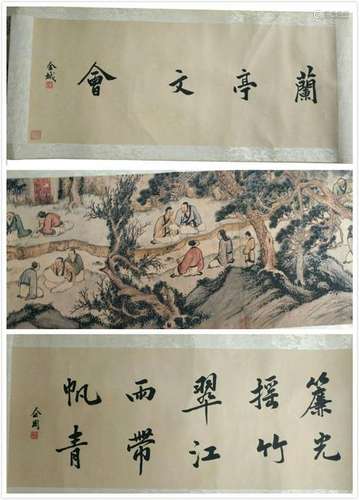 蘭亭文會
金城
簾光
搖竹
翠江
雨帶
帆青